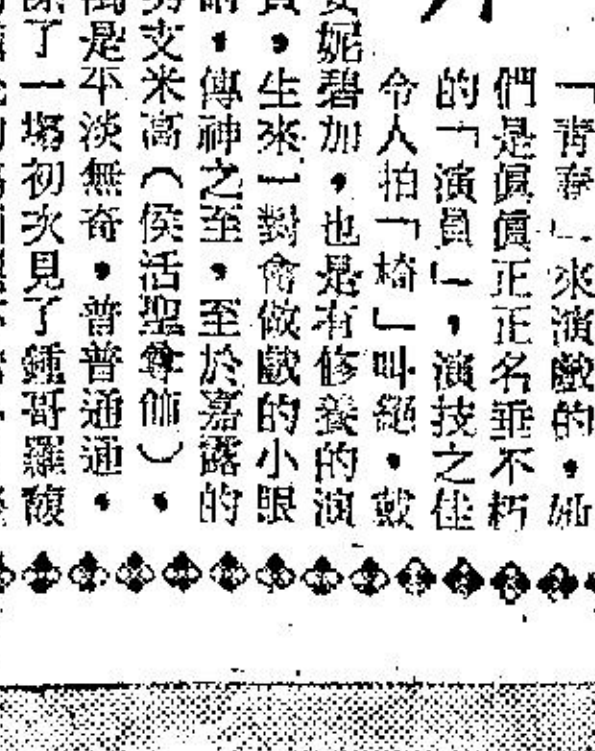 「青春」來演戲的，她
們是眞眞正正名垂不朽
的「演員」，演技之佳
令人拍「椅」叫絕，戴
妮碧加，也是有修養的演
，生來一對會做戲的小眼
，傳神之至，至於嘉露的
支米高（侯活聖尊飾），
是平淡無奇，普普通通，
了一場初次見了鍾哥羅馥